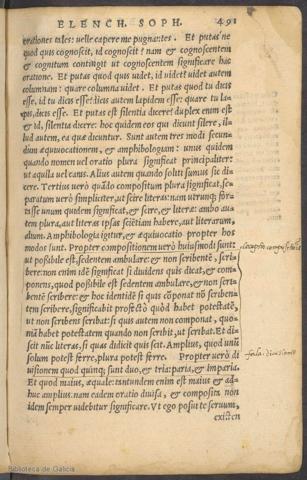 ELENCH. SOPH. 491
orationes tales: uelle capere me pugnantes. Et putas ne
quod quis cognoscit, id cognoscit? nam & cognoscentem
& cognitum contingit ut cognoscentem significare hac
oratione. Et putas quod quis uidet, id uidet? uidet autem
columnam: quare columna uidet. Et putas quod tu dicis
esse, id tu dicis esse? dicis autem lapidem esse: quare tu la-
pis, dicis esse. Et putas est silentia dicere? duplex enim est
& id, silentia dicere: hoc quidem eos qui dicunt silere, il-
lud autem, ea quæ dicuntur. Sunt autem tres modi secun-
dum æquiuocationem, & amphibologiam: unus quidem
quando nomen uel oratio plura significat principaliter:
ut aquila uel canis. Alius autem quando soliti sumus sic di-
cere. Tertius uero quando compositum plura significat, se-
paratum uero simpliciter, ut scire literas: nam utrunque, for-
tasse unum quidem significat, & scire, & literæ: ambo au-
tem plura, aut literas ipsas scientiam habere, aut literarum,
alium. Amphibologia igitur, & æquiuocatio propter hos
modos sunt. Propter compositionem uero huiusmodi sunt:
ut, possibile est, sedentem ambulare: & non scribentem, scri-
bere: non enim idem significat si diuidens quis dicat, & com-
ponens, quod possibile est sedentem ambulare, & non scri-
bentem scribere: & hoc identidem si quis componat non scriben-
tem scribere, significabit profecto quod habet potestatem,
ut non scribens scribat: si quis autem non componat, quo-
niam habet potestatem quando non scribit, ut scribat. Et di-
scit nunc literas, si quas didicit quis scit. Amplius, quod unum
solum potest ferre, plura potest ferre. Propter uero di
uisionem quod quinque, sunt duo, & tria: paria, & imparia.
Et quod maius, æquale: tantundem enim est maius & ad-
huc amplius. nam eadem oratio diuisa, & composita non
idem semper uidebitur significare. Vt ego posui te seruum,
existen
Biblioteca de Galicia